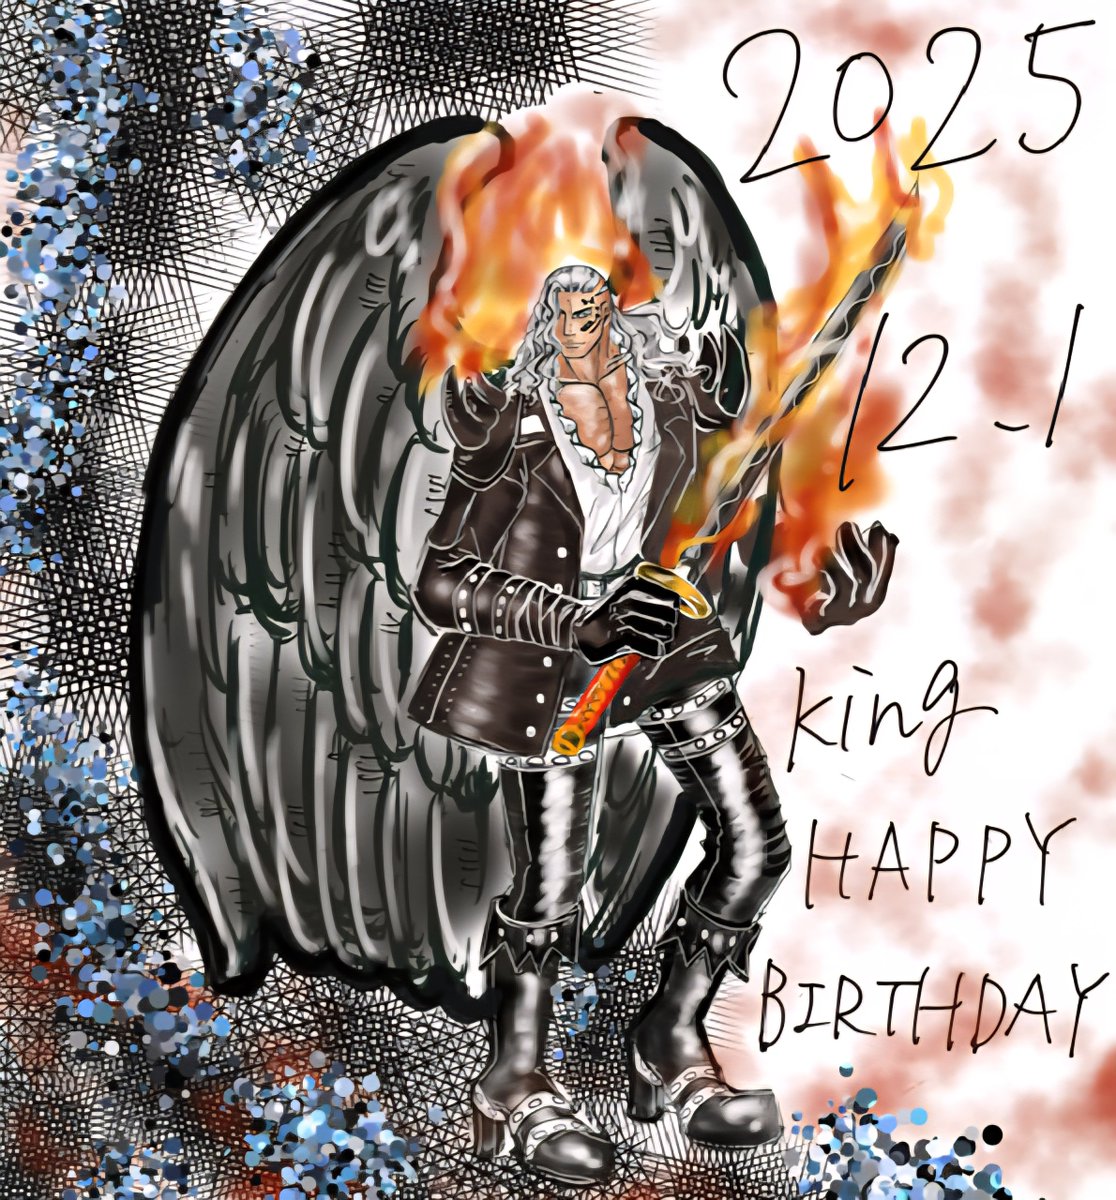 2025
12-1
king
HAPPY
BIRTHDAY